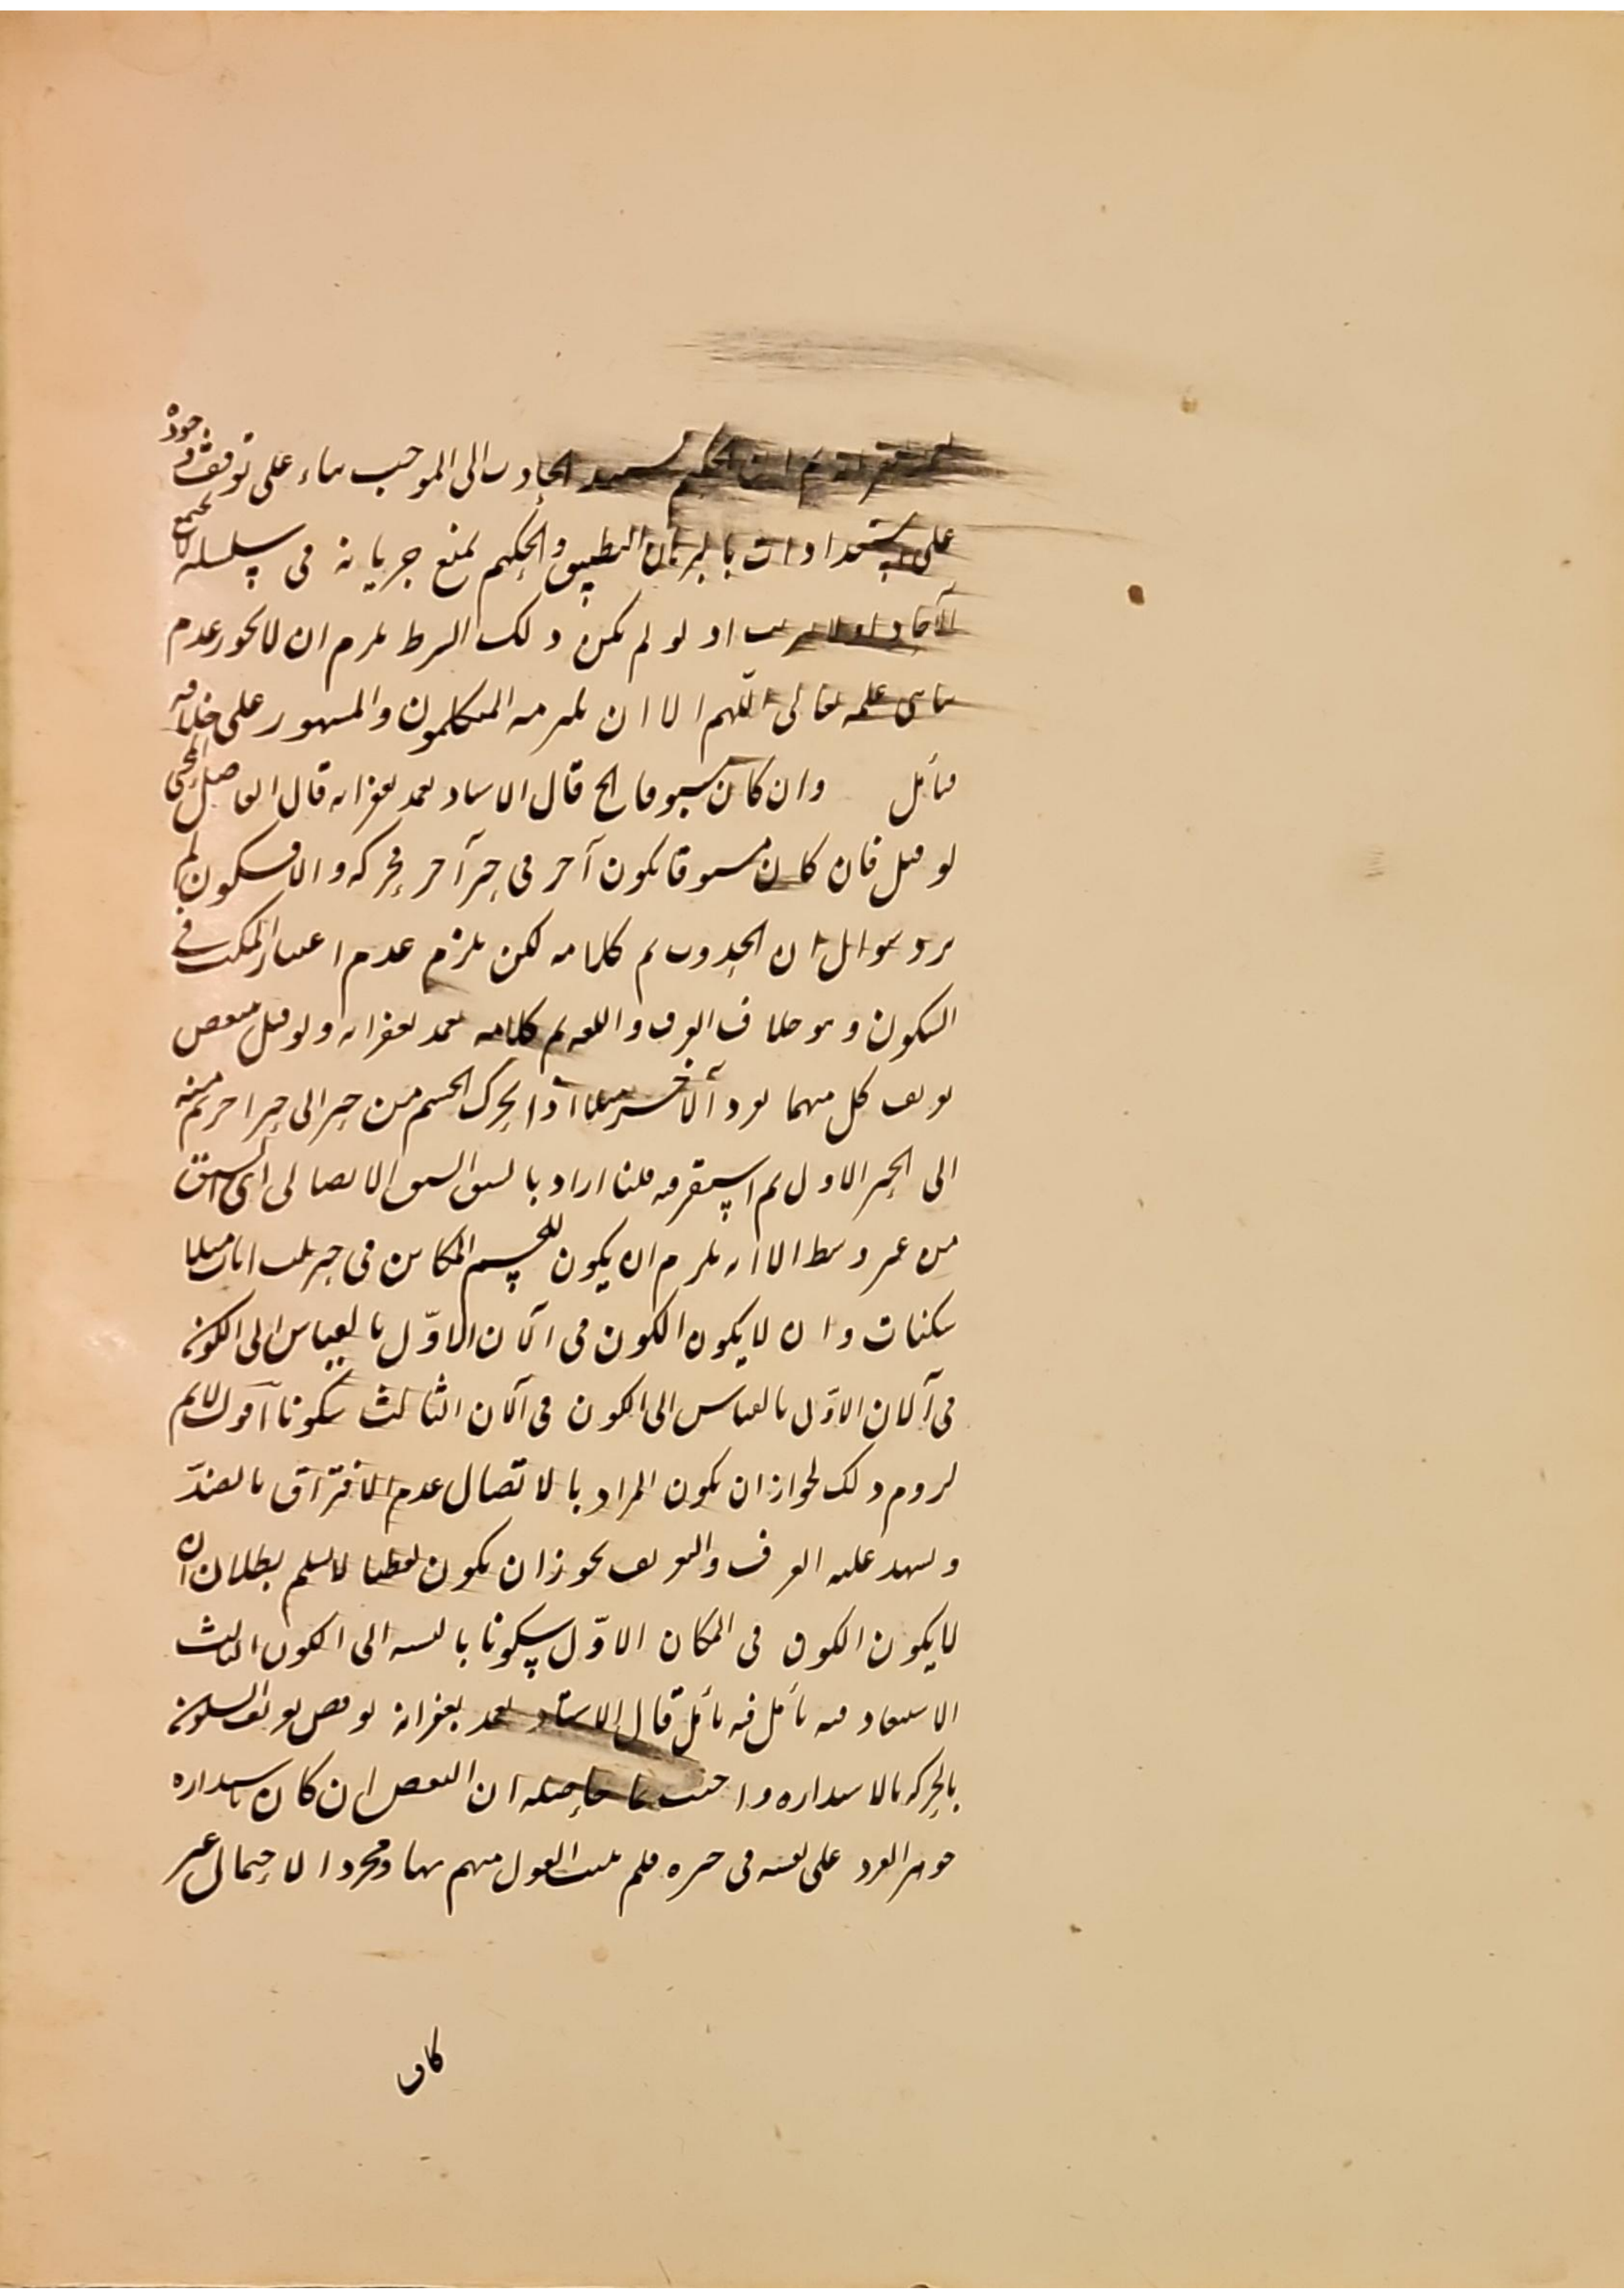 الحكيم يسند الحادث الى الموجب بناء على توقف وجوده
على استعدادات بالبرهان التطبيق والحكيم يمنع جريانه فى سلسلة لا تجتمع
الآحاد اذ لو لم يكن ذلك الشرط يلزم ان لا يجوز عدم
تناهى علمه تعالى اللهم الا ان يلتزمه المتكلمون والمشهور على خلافه
فتأمل وان كان مسبوقا الخ قال الاستاد تغمد بغفرانه قال الفاضل المحشى
لو قيل فان كان مسبوقا بكون آخر فى حيز آخر فحركة والا فسكون لم
يرد سؤال ان الحدوث تم كلامه لكن يلزم عدم اعتبار المكث فى
السكون وهو خلاف العرف واللغة تم كلامه تغمد بغفرانه ولو قيل ينتقض
تعريف كل منهما بورد الآخر مثلا اذا تحرك الجسم من حيز الى حيز آخر ثم منه
الى الحيز الاول ثم استقر فيه قلنا اراد بالسبق السبق الاتصالى اى السبق
من غير وسط الا انه يلزم ان يكون للجسم الكائن فى حيز ثلث انات مثلا
سكنات وان لا يكون الكون فى الآن الاوّل بالقياس الى الكون
فى الآن الاوّل بالقياس الى الكون فى الآن الثالث سكونا اقول لا نم
لزوم ذلك لجواز ان يكون المراد بالاتصال عدم الافتراق بالضدّ
ويشهد عليه العرف والتعريف يجوز ان يكون لفظيا لا نسلم بطلان ان
لا يكون الكون فى المكان الاوّل سكونا بالنسبة الى الكون الثالث
الاستبعاد فيه تأمل فيه تأمل قال الاستاد تغمد بغفرانه نوقض تعريف السكون
بالحركة بالاستدارة واجيب بما حاصله ان النقض ان كان باستدارة
جوهر الفرد على نفسه فى حيزه فلم يثبت القول منهم بها ومجرد الاحتمال غير
كاف